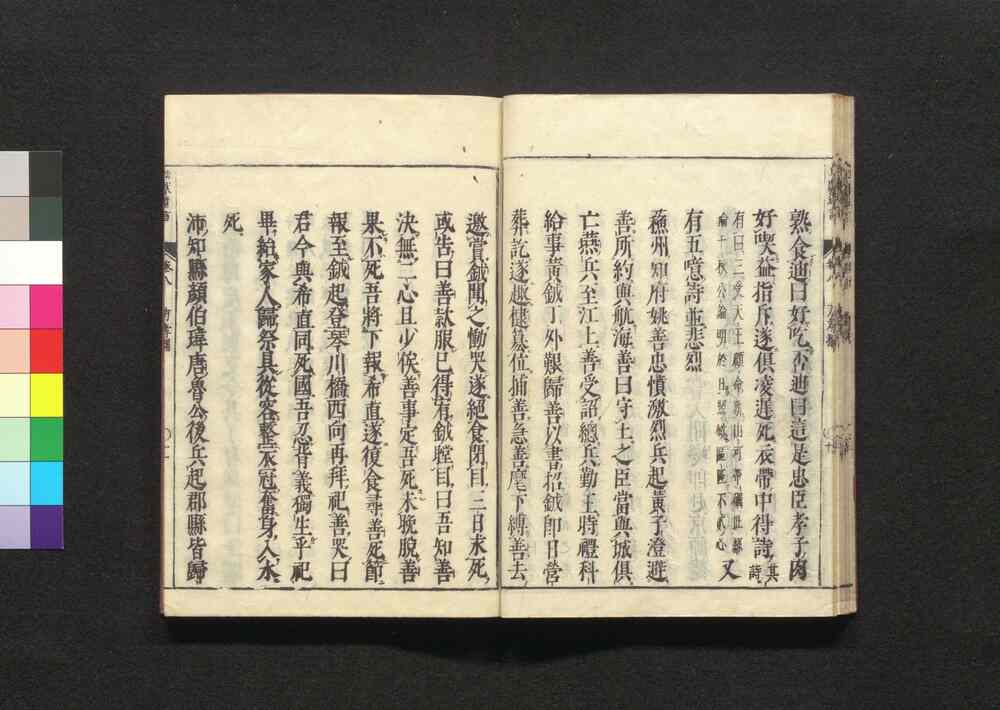 熟食迪曰好吃否迪曰這是忠臣孝子肉
好喫益指斥遂俱凌遲死衣帶中得詩其詩
有曰三受天王顧命新山河帶礪此絲
綸千秋公論明於日照徹區區不貳心又
有五噫詩並悲烈
蘓州知府姚善忠憤激烈兵起黃子澄避
善所約與航海善曰守土之臣當與城俱
亡燕兵至江上善受詔總兵勤王時禮科
給事黃鉞丁外艱歸善以書招鉞即日營
葬訖遂趣
位捕善急善麾下縛善去
邀賞鉞聞之慟哭遂絕食閉目三日未死
或告曰善款服已得宥鉞瞠目曰吾知善
決無二心且少俟善事定吾死未晚脫善
果不死吾將下報希直遂復食尋善死節
報至鉞起登琴川橋西向再拜祀善哭曰
君今與希直同死國吾忍背義獨生乎祀
畢紿家人歸祭具從容整衣冠奮身入水
死
沛知縣顏伯瑋唐魯公後兵起郡縣皆歸